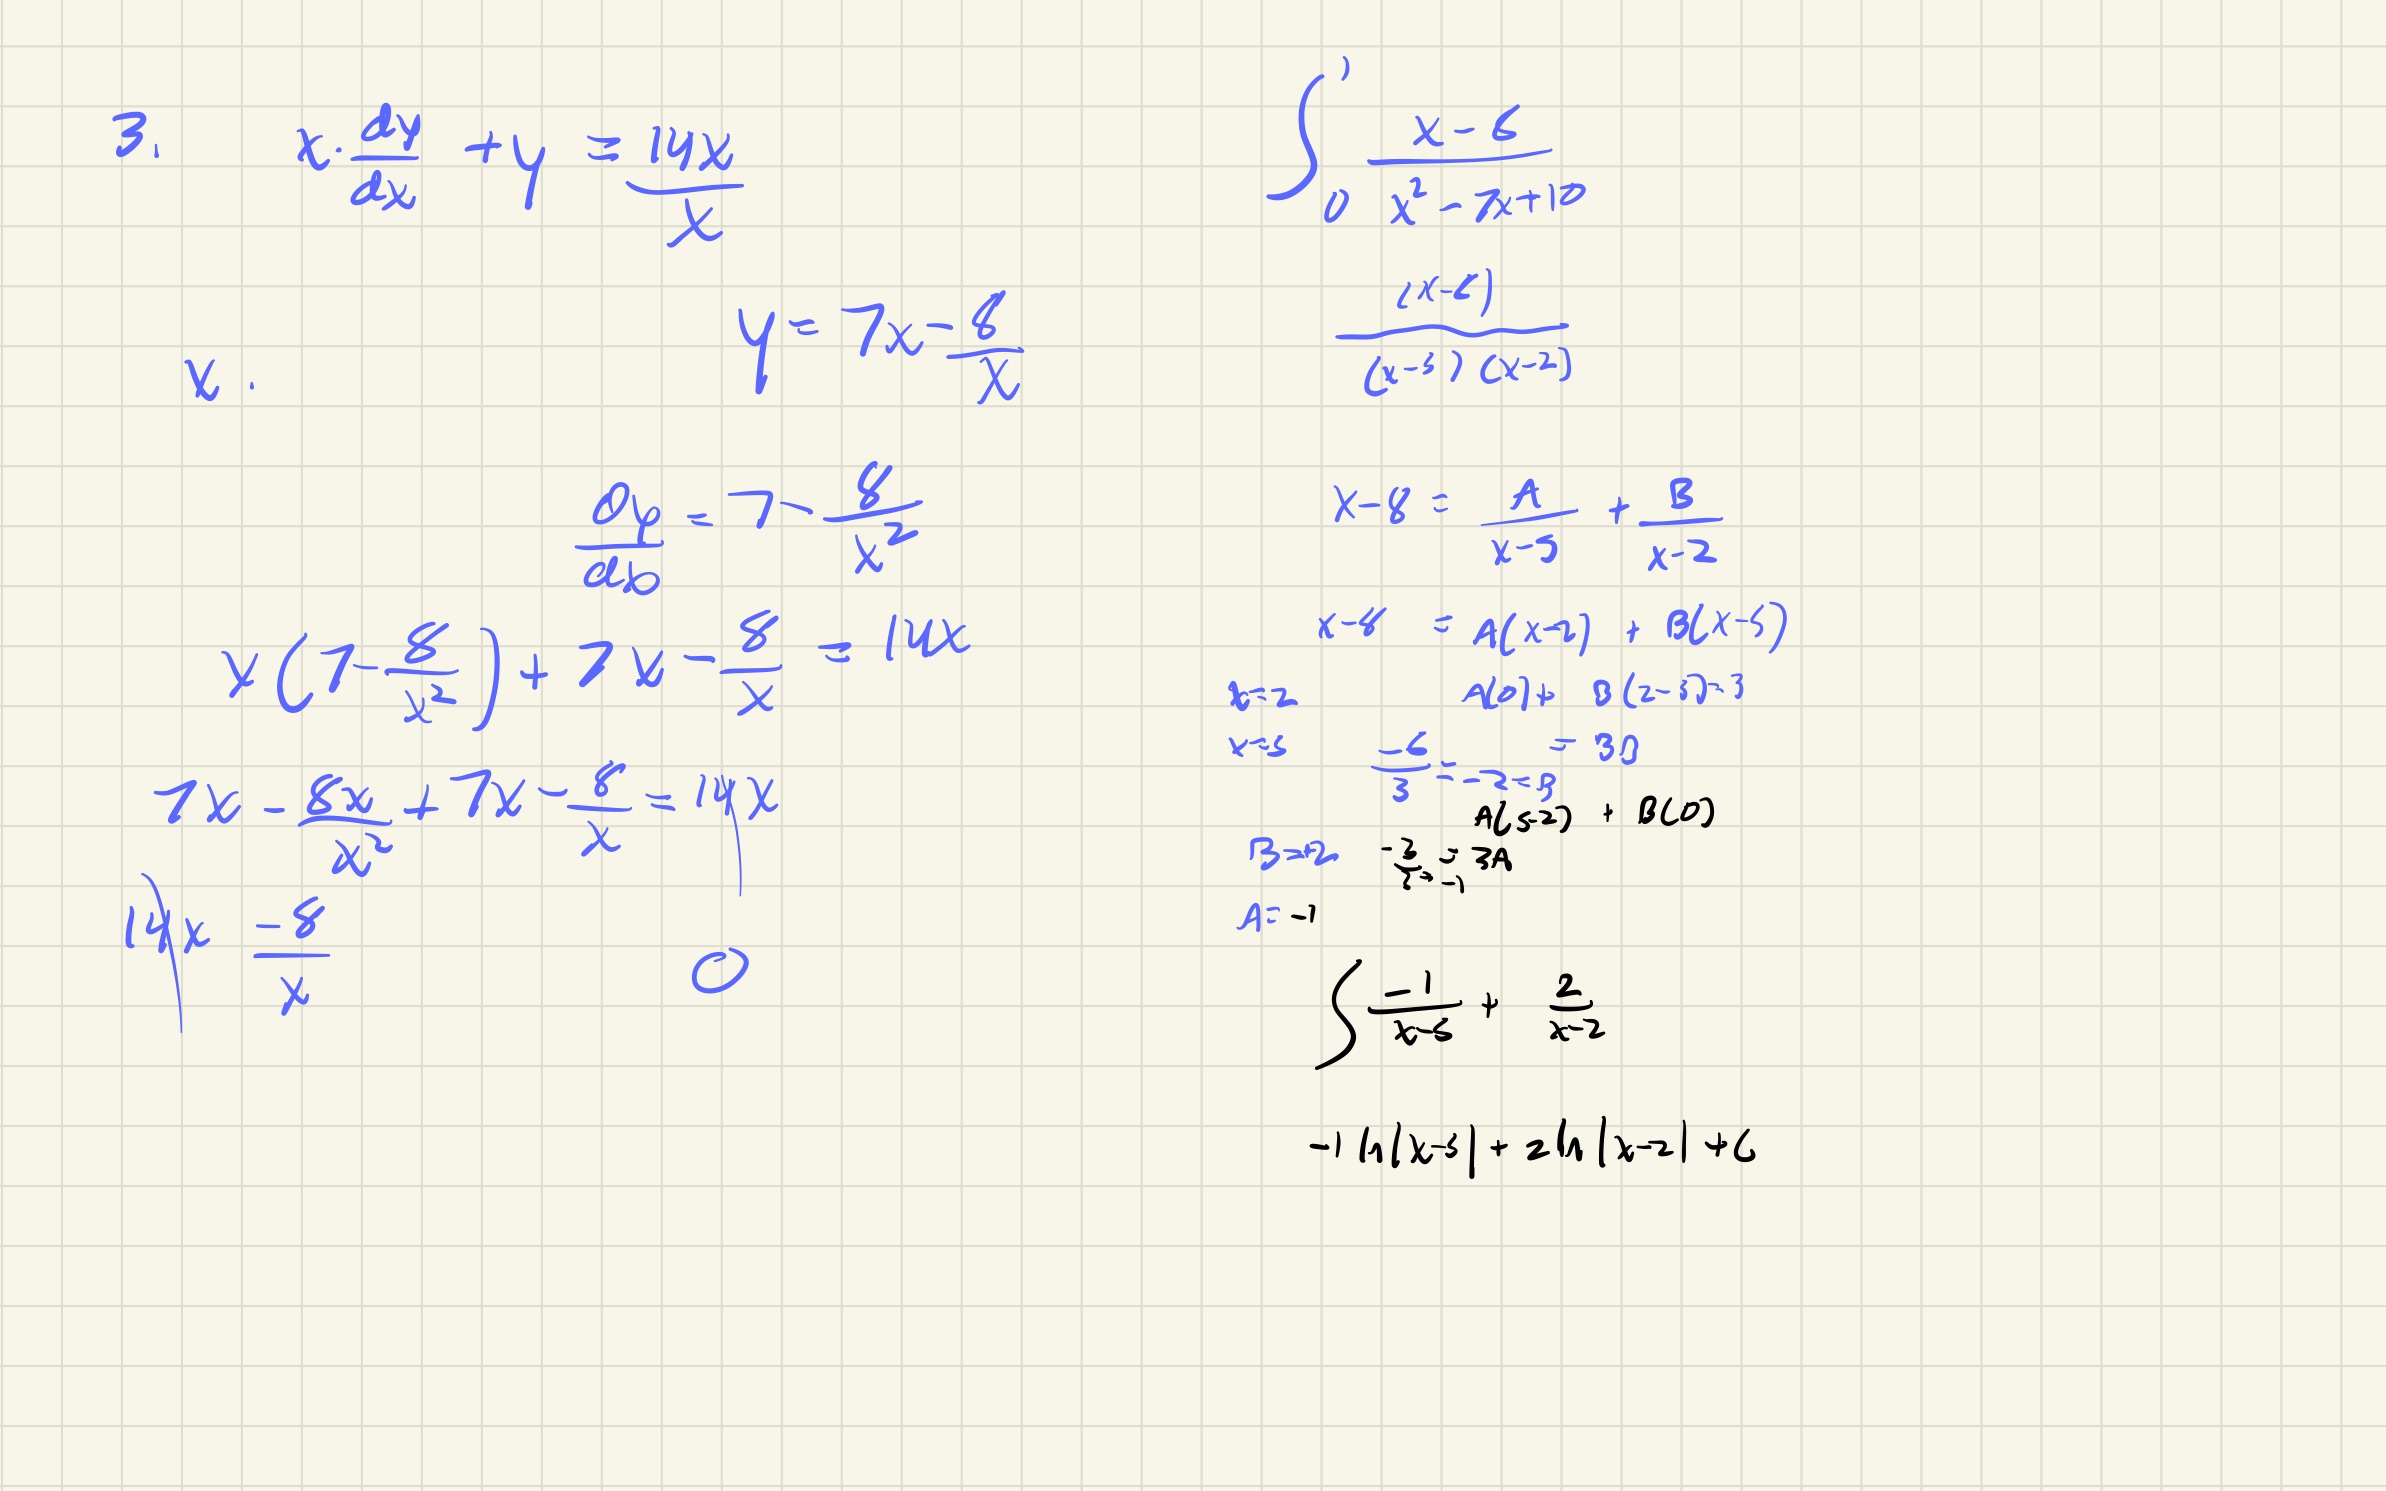 3. x · dy/dx + y = 14x/x
y = 7x - 8/x
x ·
dy/dx = 7 - 8/x²
x(7 - 8/x²) + 7x - 8/x = 14x
7x - 8x/x² + 7x - 8/x = 14x
14x -8/x 0
∫₀¹ x-8/x²-7x+10
(x-8)/(x-5)(x-2)
x-8 = A/x-5 + B/x-2
x-8 = A(x-2) + B(x-5)
x=2 A(0) + B(2-5)=3
x=5 -6/3 = -2=B
A(5-2) + B(0)
-3/3 = 3A
= -1
A = -1
∫ -1/x-5 + 2/x-2
-1 ln|x-5| + 2 ln|x-2| + C